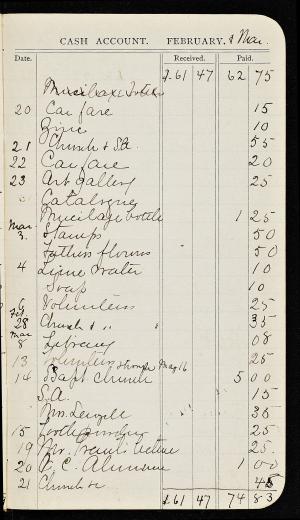 CASH ACCOUNT. FEBRUARY. & Mar.
Date. Received. Paid.
$61 47 62 75
20 Car fare 15
10
21 Church & S.A. 55
22 Car fare 20
23 Art gallery 25
Catalogues
Mucilage bottle 1 25
Mar 3 Stamps 50
Fathers flowers 50
4 Lime water 10
Soap 10
6 Volunteers 25
Feb 28 Church & " " 35
Mar 8 Library 08
13 Volunteers through Mag 16 25
14 Bapt Church 5 00
S.A. 15
Mrs. 35
15 Tooth powder 25
19 Mr. lecture 25
20 1 00
21 Church & 45
$61 47 74 83